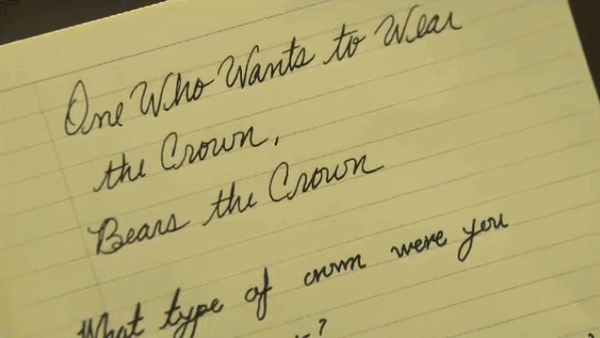 One Who Wants to Wear
the Crown,
Bears the Crown
What type of crown were you
?